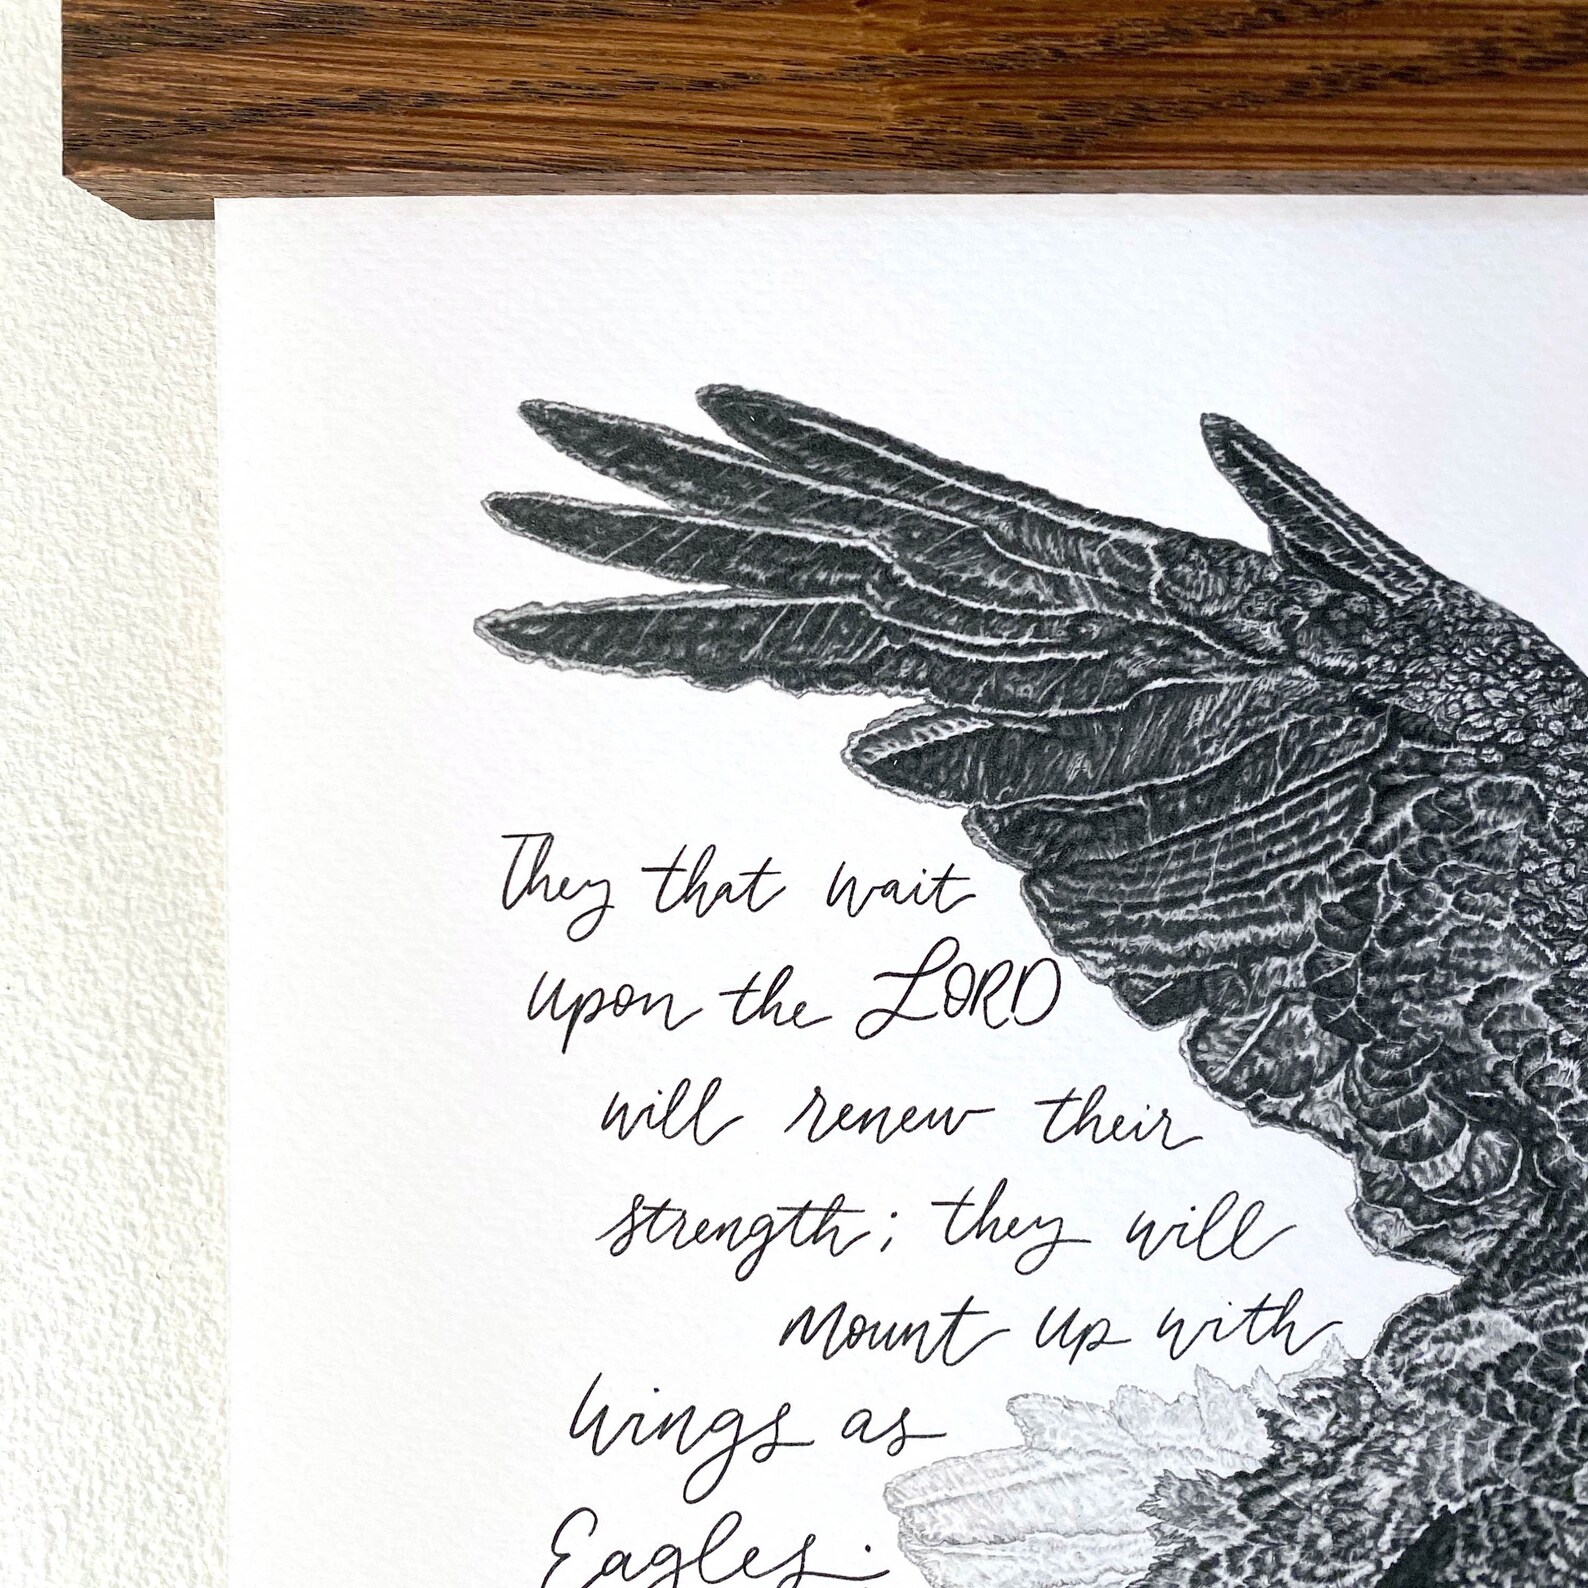 They that wait
upon the LORD
will renew their
strength; they will
mount up with
wings as
Eagles;